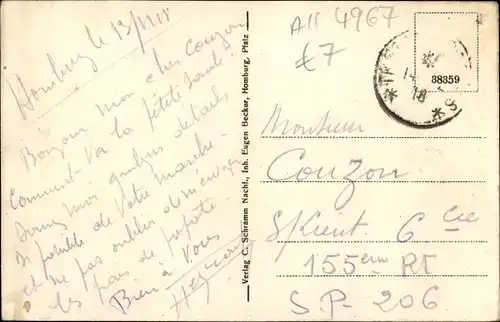 Hombourg le 13/1/18
Bonjour mon cher Couzon
Comment va la petite santé
Donnez moi quelques détails
si possible de votre marche
et ne pas oublier de m'envoyer
les
Bien à Vous
A11 4967
£7
88359
14
18
Monsieur
Couzon
S/Lient 6 Cie
155em RI
S.P. 206
Verlag C. Schramm Nachf., Inh. Eugen Becker, Homburg, Pfalz